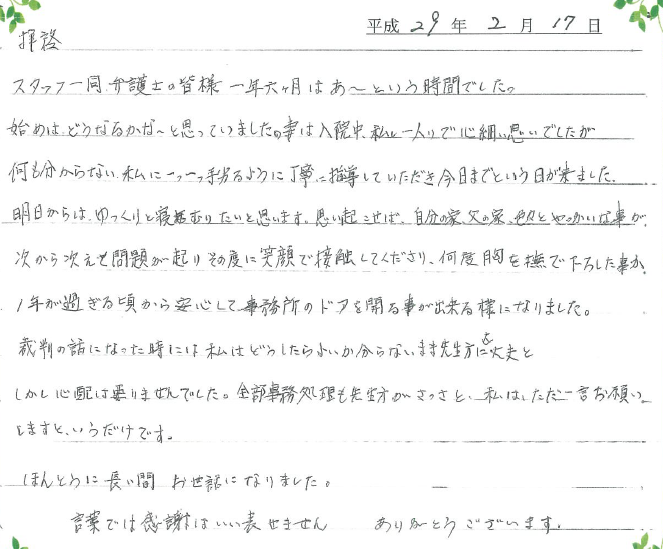 平成 29 年 2 月 17 日
拝啓
スタッフ一同、弁護士の皆様 一年六ヶ月は あ〜という時間でした。
始めは、どうなるかな〜と思っていました。妻は入院中、私し一人りで心細い思いでしたが
何も分からない、私に一つ一つ手ほるように丁寧に指導していただき今日までという日が来ました、
明日からは、ゆっくりと寝むりたいと思います。思い起こせば、自分の家、父の家、色々とやっかいな事が、
次から次えと問題が起り その度に笑顔で接触してくださり、何度胸を撫で下ろした事か、
1年が過ぎる頃から安心して事務所のドアを開る事が出来る様になりました。
裁判の話になった時には私はどうしたらよいか分らないまま先生方に大丈夫と
しかし心配は要りませんでした。全部事務処理も先生方がさっさと、私は、ただ一言お願い、
しますと、いうだけです。
ほんとうに長い間 お世話になりました。
言葉では感謝はいい表せません ありがとうございます。